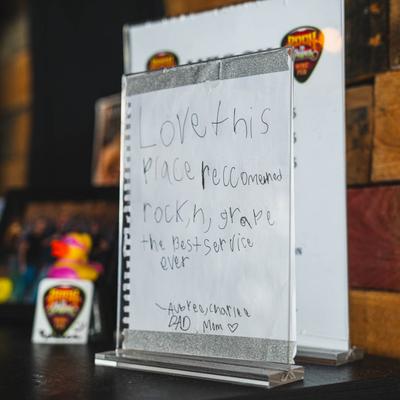 Love this
place reccomended
rock,n, grape
the Best service
ever
~Aubree, Charlee
DAD, Mom ♡